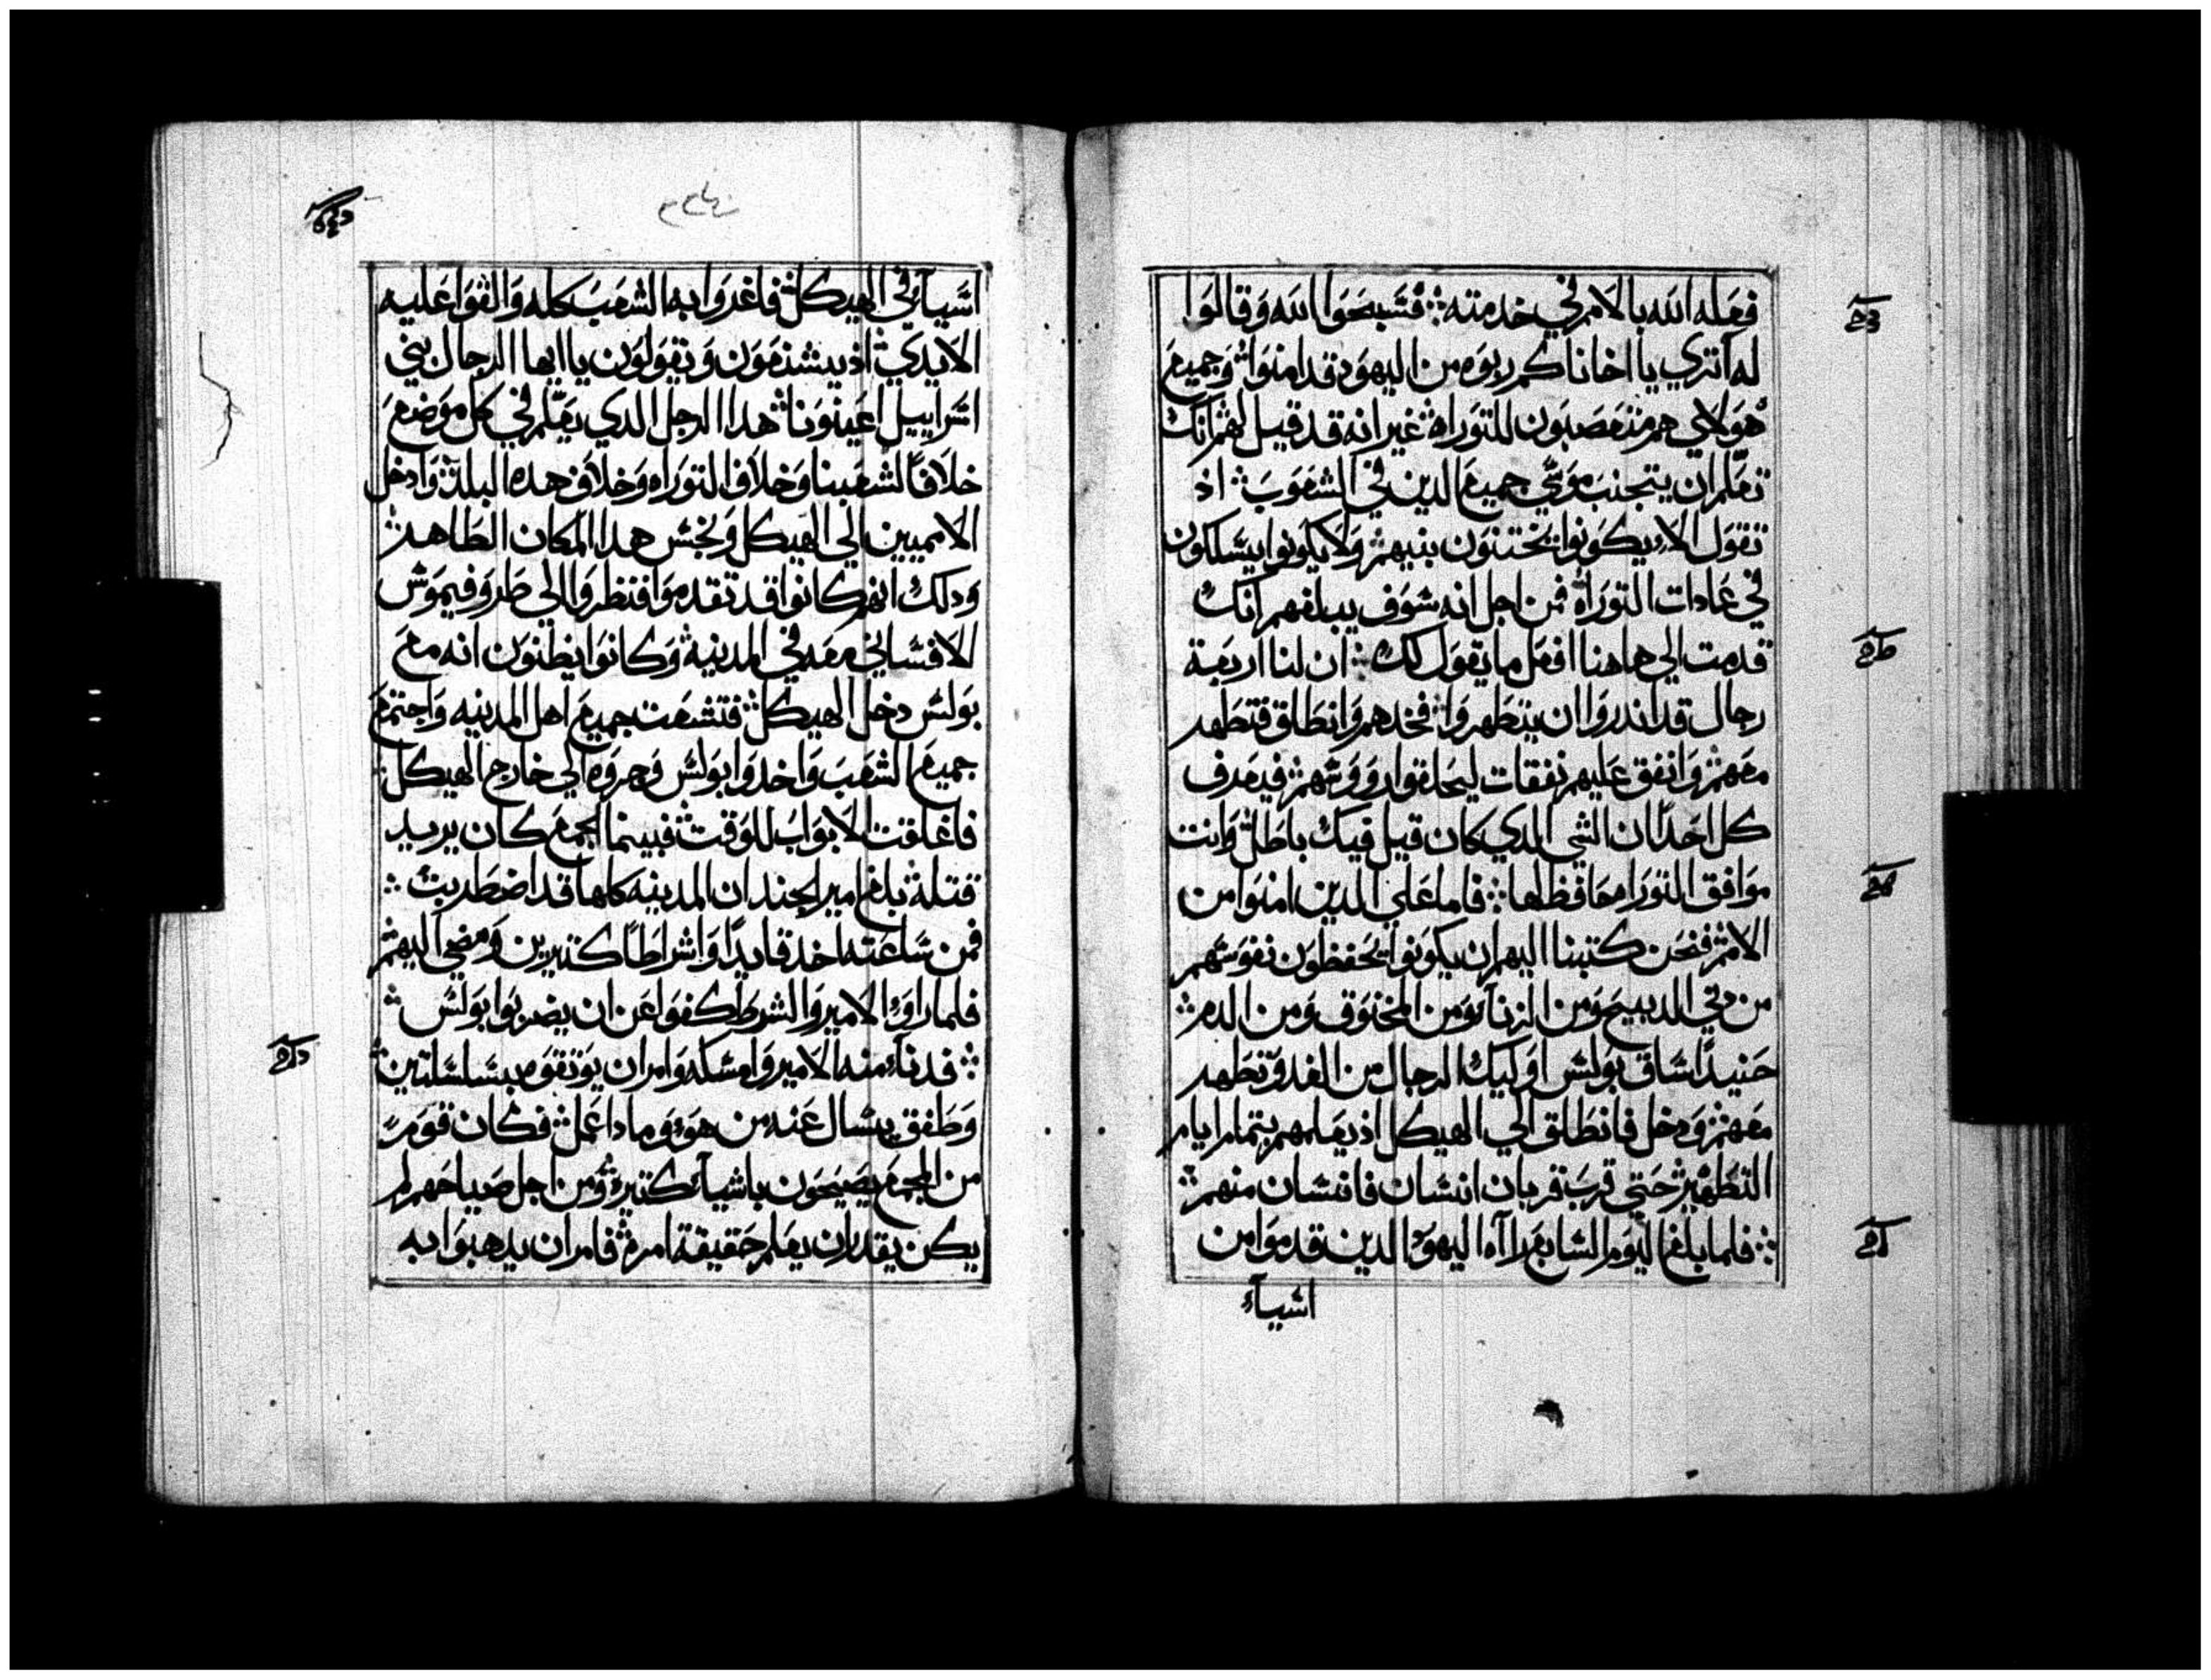 فعله الله بالامم في خدمته ܀ فسبحوا الله وقالوا
له اتري يا اخانا كم ربوه من اليهود قد امنوا وجميع
هولاي هم متعصبون للتوراه غير انه قد قيل لهم انك
تعلم ان يتجنب موسي جميع الدين في الشعوب اذ
تقول الا يكونوا يختنون بنيهم ولا يكونوا يسلكون
في عادات التوراة فمن اجل انه سوف يبلغهم انك
قدمت الي هاهنا افعل ما يقول لك ܀ ان لنا اربعة
رجال قد اندروا ان يتطهروا فخدهم وانطلق فتطهر
معهم وانفق عليهم نفقات ليحلقوا رووسهم فيعرف
كل احدًا ان الشي الدي كان قيل فيك باطل وانت
موافق التوراه محافظ لها ܀ فاما علي الدين امنوا من
الامم فنحن كتبنا اليهم ان يكونوا يحفظون نفوسهم
من دبي الدبيح ومن الزناء ومن المخنوق ومن الدم ܀
حنيدًا ساق بولس اوليك الرجال من الغد وتطهر
معهم ودخل فانطلق الي الهيكل اذ يعلمهم بتمام ايام
التطهير حتي قرب قربان انسان فانسان منهم ܀
܀ فلما بلغ اليوم السابع راآه اليهود الدين قدموا من
اسياء
اسياء في الهيكل فاغروا به الشعب كله والقوا عليه
الايدي اذ يستدعون وتقولون يا ايها الرجال بني
اسراييل اعينونا هدا الرجل الدي يعلم في كل موضع
خلافًا لشعبنا وخلاف التوراه وخلاف هده البلد وادخل
الامميين الي الهيكل ونجس هدا المكان الطاهر
ودلك انهم كانوا قد تقدموا فنظروا الي طروفيموس
الافساني معه في المدينه وكانوا يظنون انه مع
بولس دخل الهيكل فتشعت جميع اهل المدينه واجتمع
جميع الشعب واخدوا بولس وجروه الي خارج الهيكل
فاغلقت الابواب للوقت فبينما الجمع كان يريد
قتله بلغ امير الجند ان المدينه كلها قد اضطربت ܀
فمن ساعته اخد قايدًا واشراطًا كتيرين ومضي اليهم
فلما راوا الامير والشرط كفوا عن ان يضربوا بولس ܀
܀ فدنا منه الامير وامسكه وامر ان يوتقوه بسلسلتين
وطفق يسال عنه من هو وما دا عمل فكان قوم
من الجمع يصيحون باشياء كتيره ومن اجل صياحهم لم
يكن يقدر ان يعلم حقيقة امره فامر ان يدهبوا به